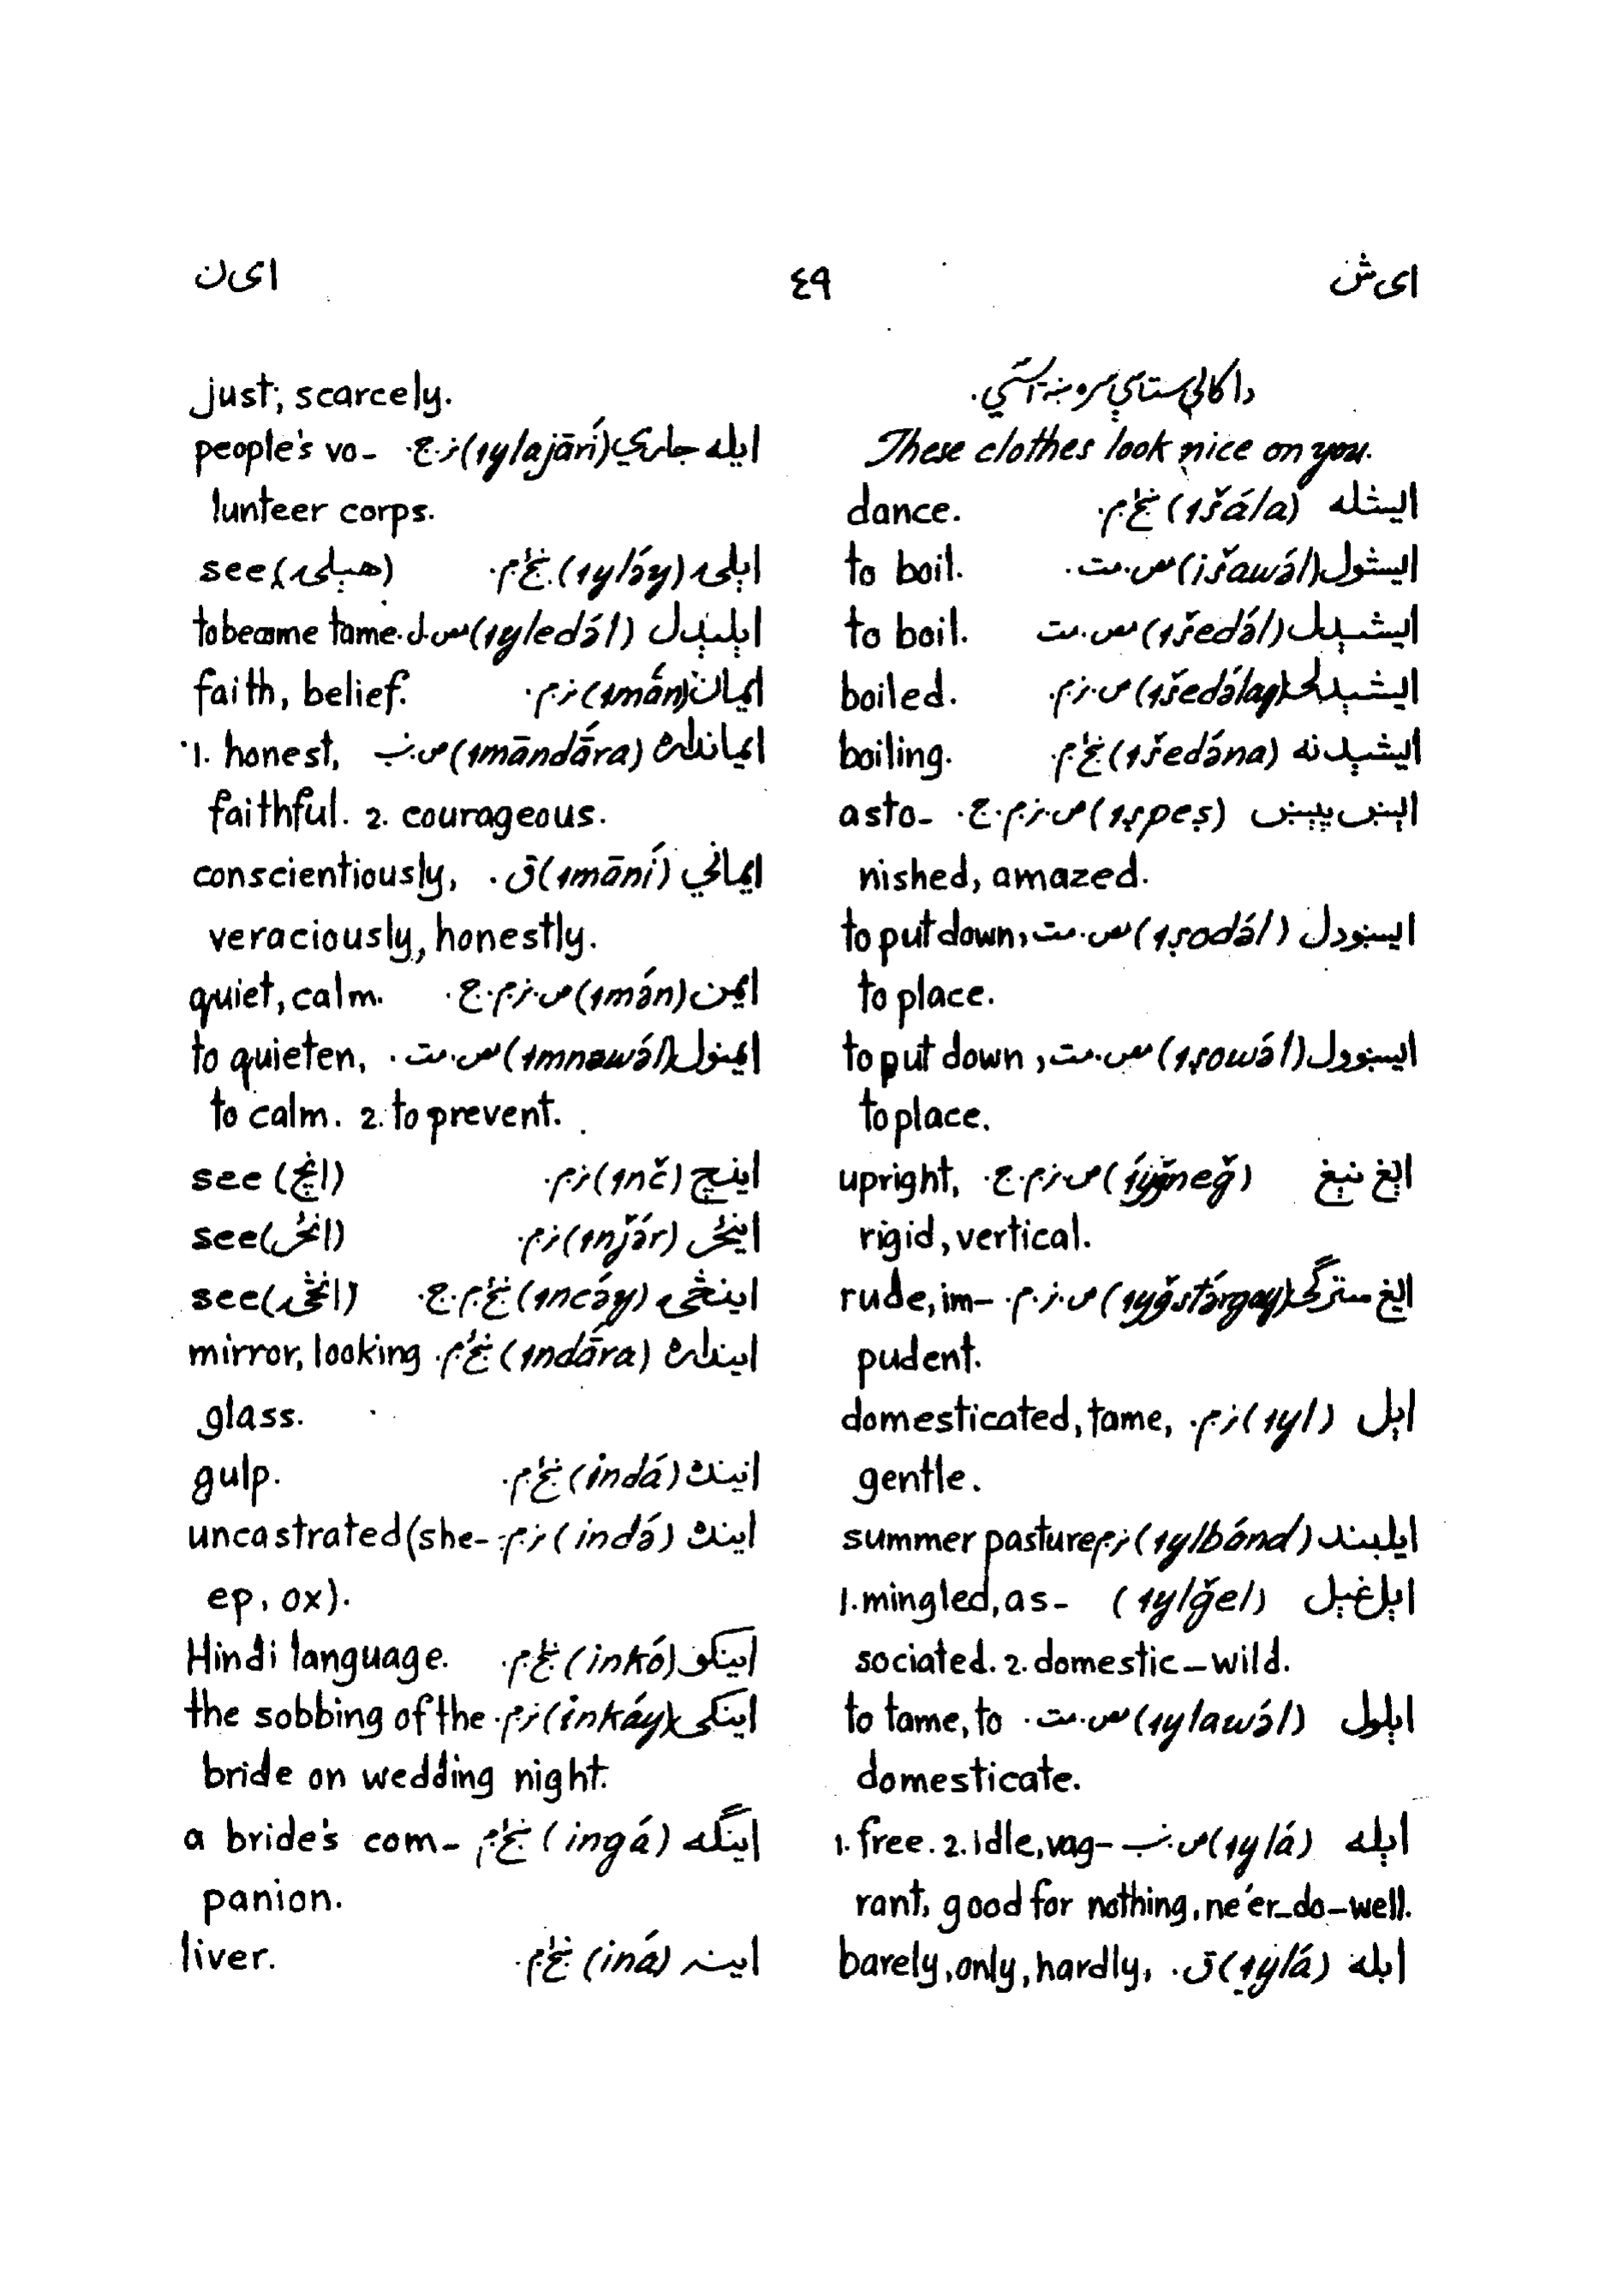 ای ش ٤٩ ای ن
دا کالي ستاې سره ښه
These clothes look nice on you.
ایشله (ıšála) ښځ.م. dance.
ایشول (išawə́l) مص.مت. to boil.
ایشېدل (ıšedə́l) مص.مت to boil.
ایشېدلی (ıšedə́lay) ص.نر.م. boiled.
ایشېدنه (ıšedə́na) ښځ.م. boiling.
ایښ پېښ (ıṣpeṣ) ص.نر.م.ج. asto-
nished, amazed.
ایښودل (ıṣodə́l) مص.مت. to put down,
to place.
ایښوول (ıṣowə́l) مص.مت. to put down,
to place.
ایغ نېغ (íyğneğ) ص.نر.م.ج. upright,
rigid, vertical.
ایغ سترگی (ıyğstə́rgay) ص.نر.م. rude, im-
pudent.
اېل (ıyl) نر.م. domesticated, tame,
gentle.
ایلبند (ıylbánd) نر.م summer pasture
اېل غېل (ıylğel) 1. mingled, as-
sociated. 2. domestic-wild.
اېلول (ıylawə́l) مص.مت. to tame, to
domesticate.
اېله (ıylá) ص.ښ. 1. free. 2. idle, vag-
rant, good for nothing, ne'er-do-well.
اېله (ıylá) ق. barely, only, hardly,
just, scarcely.
ایله جاري (ıylajārí) نر.ج. people's vo-
lunteer corps.
اېلۍ (ıylə́y) ښځ.م. see (هېلۍ)
اېلېدل (ıyledə́l) مص.ل. to become tame.
ایمان (ımā́n) نر.م. faith, belief.
ایمانداره (ımāndā́ra) ص.ښ. 1. honest,
faithful. 2. courageous.
ایماني (ımāní) ق. conscientiously,
veraciously, honestly.
ایمن (ımə́n) ص.نر.م.ج. quiet, calm.
ایمنول (ımnawə́l) مص.مت. to quieten,
to calm. 2. to prevent.
اینچ (ınč) نر.م. see (انچ)
اینځر (ınǰə́r) نر.م. see (انځر)
اینڅۍ (ıncə́y) ښځ.م.ج. see (انڅۍ)
اینداره (ındā́ra) ښځ.م. mirror, looking
glass.
اینده (indá) ښځ.م. gulp.
اینده (ində́) نر.م. uncastrated (she-
ep, ox).
اینکو (inkó) ښځ.م. Hindi language.
اینکی (inkáy) نر.م. the sobbing of the
bride on wedding night.
اینگه (ingá) ښځ.م a bride's com-
panion.
اینه (iná) ښځ.م. liver.